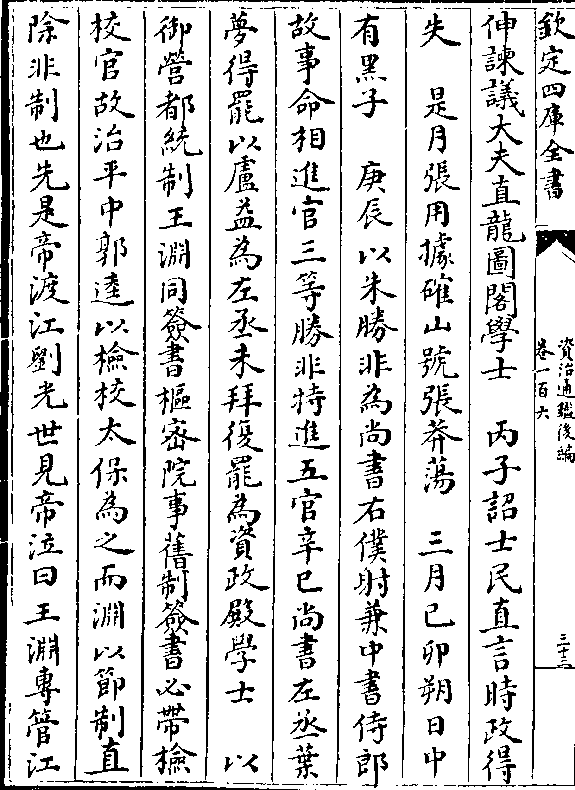 欽定四庫全書
資治通鑑後編
卷一百六
三十三
伸諫議大夫直龍圖閣學士　丙子詔士民直言時政得
失　是月張用據確山號張莽蕩　三月己卯朔日中
有黑子　庚辰以朱勝非為尚書右僕射兼中書侍郎
故事命相進官三等勝非特進五官辛巳尚書左丞葉
夢得罷以盧益為左丞未拜復罷為資政殿學士　以
御營都統制王淵同簽書樞密院事舊制簽書必帶檢
校官故治平中郭逵以檢校太保為之而淵以節制直
除非制也先是帝渡江劉光世見帝泣曰王淵專管江